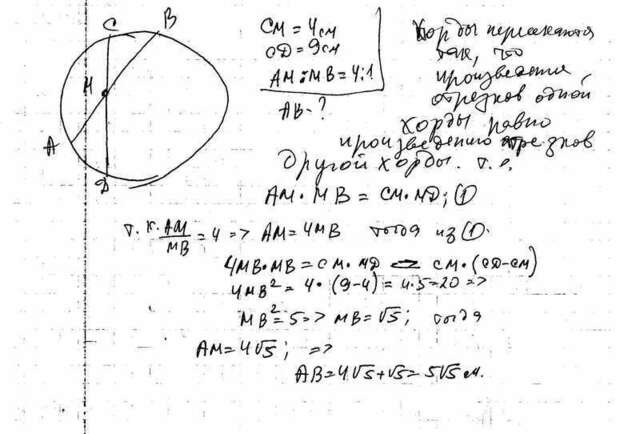 C B
M
A
D
CM = 4 см
CD = 9 см
AM : MB = 4 : 1
AB - ?
Хорды пересекаются
так, что
произведения
отрезков одной
хорды равно
произведению отрезков
другой хорды. т.е.
AM · MB = CM · MD; (1)
т.к. AM/MB = 4 => AM = 4MB тогда из (1).
4MB · MB = CM · MD = CM · (CD - CM)
4MB² = 4 · (9-4) = 4·5 = 20 =>
MB² = 5 => MB = √5; тогда
AM = 4√5; =>
AB = 4√5 + √5 = 5√5 см.